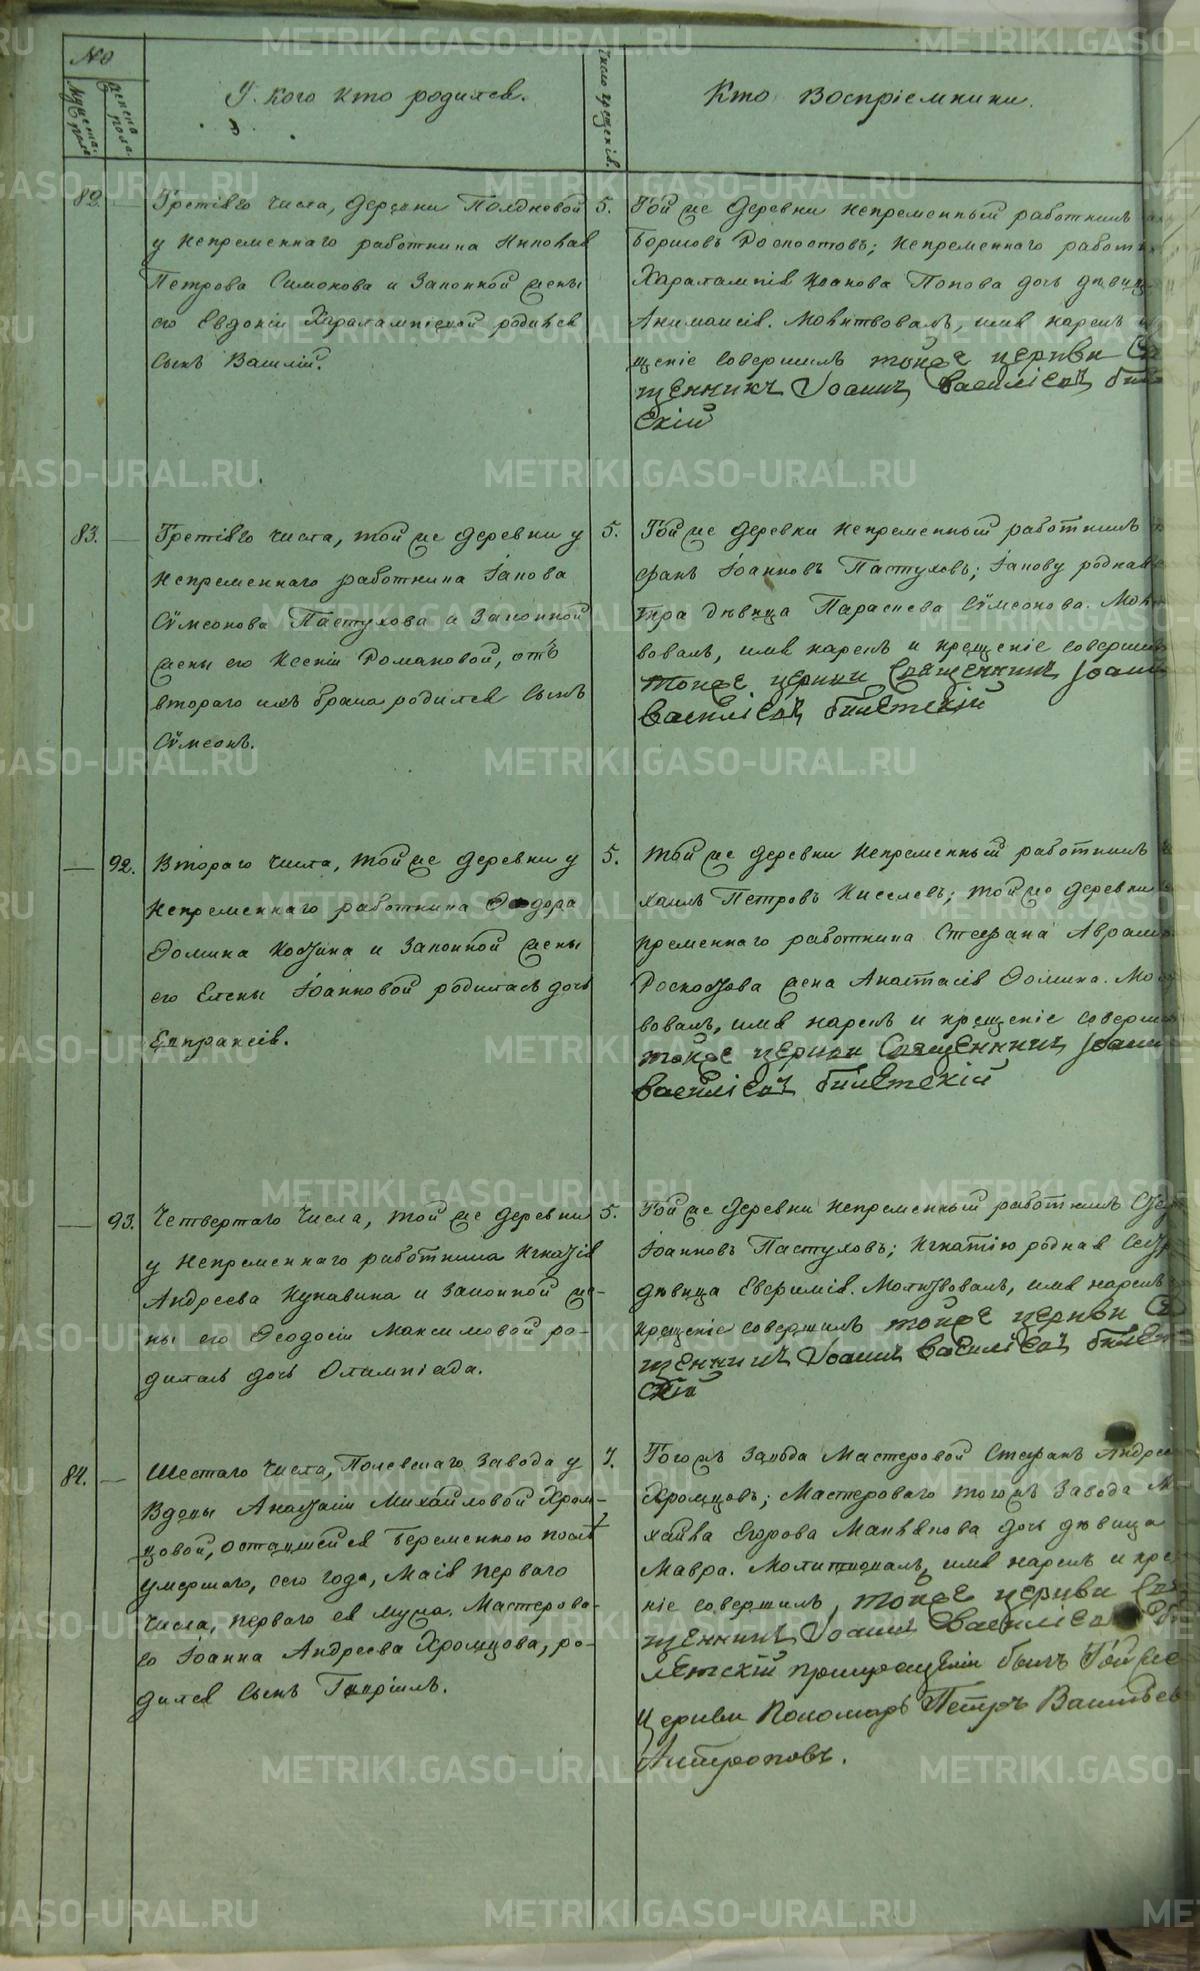 №
Мужеска пола
Женска пола
У кого кто родился.
Число крещенія.
Кто Воспріемники.
82.
Третіяго числа, деревни Полдневой
у непременнаго работника
Петрова Симонова и Законной жены
его Евдокіи Харалампіевой родился
Сынъ Василій.
5.
Той же деревни непременный работникъ
непременнаго работн
Харалампія Іоанова Попова дочь девица
Молитвовалъ, имя нарекъ и
щеніе совершилъ тойже церкви Свя
щенникъ Иоаннъ Василіевъ
скій
83.
Третіяго числа, той же деревни у
непременнаго работника Іакова
Сѵмеонова Пастухова и Законной
жены его Ксеніи Романовой, отъ
втораго ихъ брака родился Сынъ
Сѵмеонъ.
5.
Той же деревни непременный работникъ
фанъ Іоанновъ Пастуховъ; Іакову родная
тра девица Параскева Сѵмеонова. Моли
вовалъ, имя нарекъ и крещеніе соверши
тойже церкви Священникъ Іоанн
Василіевъ Билетскій
92.
Втораго числа, той же деревни у
непременнаго работника Ѳедора
Ѳомина и Законной жены
его Елены Іоанновой родилась дочь
Евпраксія.
5.
той же деревни непременный работникъ
хаилъ Петровъ Киселевъ; той же деревни
пременнаго работника Стефана Аврам
жена Анастасія Ѳомина. Мол
вовалъ, имя нарекъ и крещеніе соверши
тойже церкви Священникъ Іоанн
Василіевъ Билетскій
93.
Четвертаго числа, той же деревни
у непременнаго работника Игнатія
Андреева Кунавина и Законной же-
ны его Ѳеодосіи Максимовой ро-
дилась дочь Олимпіада.
5.
Той же деревни непременный работникъ
Іоанновъ Пастуховъ; Игнатію родная Сест
девица Евфимія. Молитвовалъ, имя нарекъ
крещеніе совершилъ тойже церкви Свя
щенникъ Иоаннъ Василіевъ Билет
скій
84.
Шестаго числа, Полевскаго Завода у
Вдовы Анастасіи Михайловой Хром-
цовой, оставшейся беременною после
умершаго, сего года, Маія перваго
числа, перваго ея мужа. Мастерова-
го Іоанна Андреева Хромцова, ро-
дился Сынъ Гавріилъ.
7.
Тогожъ Завода Мастеровой Стефанъ Андрее
Хромцовъ; Мастероваго тогожъ Завода Ми
хаила Егорова дочь девица
Мавра. Молитвовалъ, имя нарекъ и кре
ніе совершилъ, тойже церкви Свя
щенникъ Иоаннъ Василіевъ Би
летскій при крещеніи былъ Той же
Церкви Пономарь Петръ Васильев
Антроповъ.